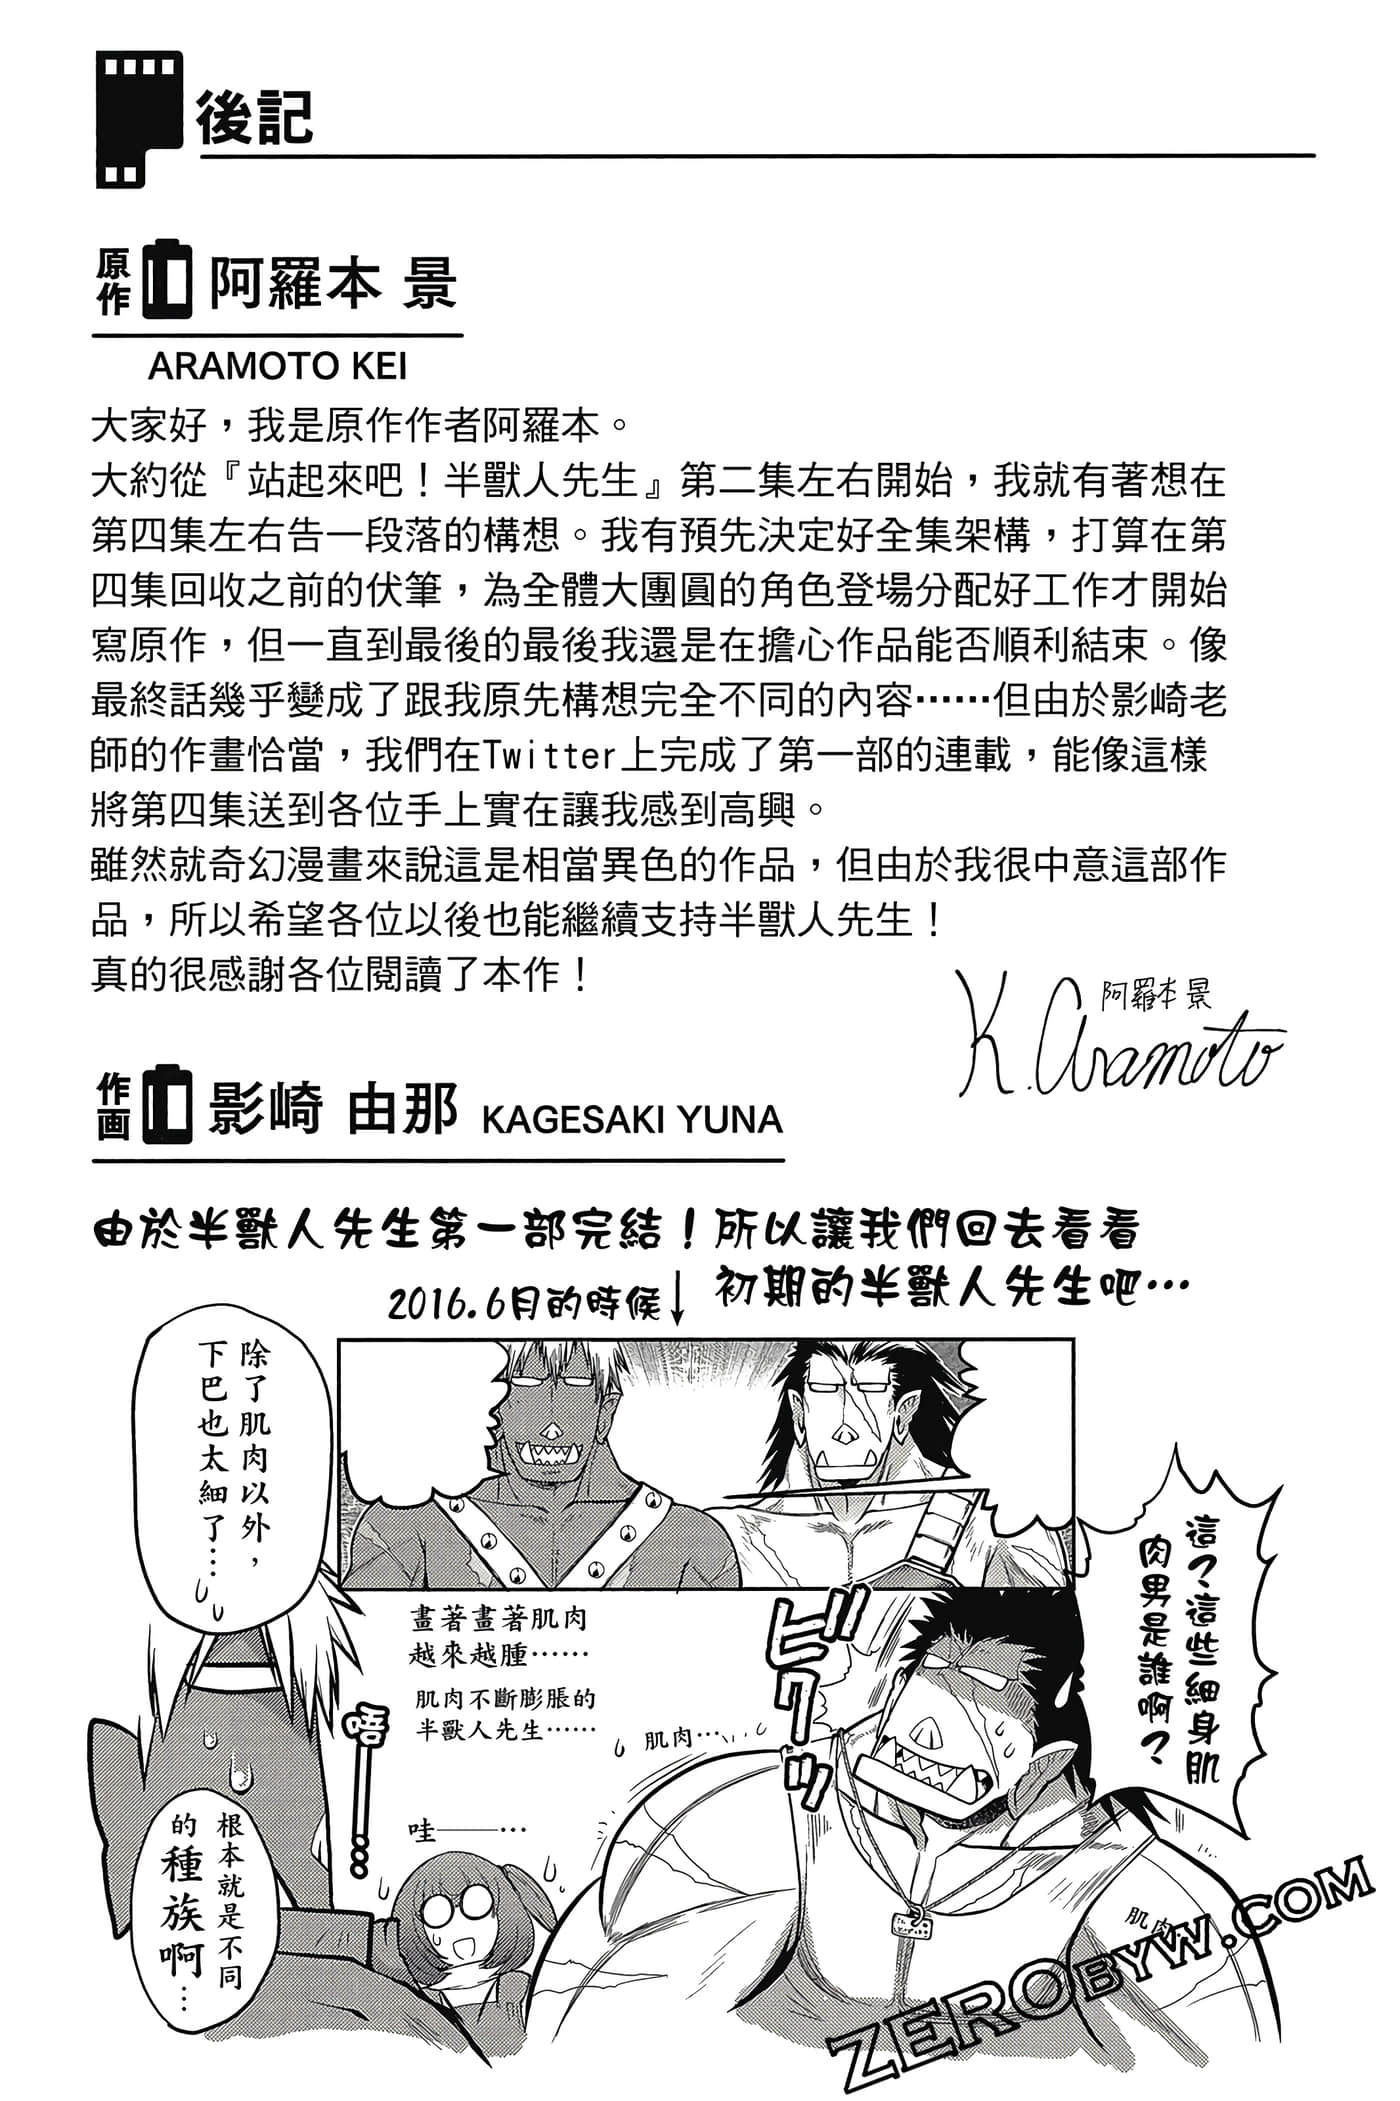 後記
原作
阿羅本 景
ARAMOTO KEI
大家好，我是原作作者阿羅本。
大約從『站起來吧！半獸人先生』第二集左右開始，我就有著想在
第四集左右告一段落的構想。我有預先決定好全集架構，打算在第
四集回收之前的伏筆，為全體大團圓的角色登場分配好工作才開始
寫原作，但一直到最後的最後我還是在擔心作品能否順利結束。像
最終話幾乎變成了跟我原先構想完全不同的內容……但由於影崎老
師的作畫恰當，我們在Twitter上完成了第一部的連載，能像這樣
將第四集送到各位手上實在讓我感到高興。
雖然就奇幻漫畫來說這是相當異色的作品，但由於我很中意這部作
品，所以希望各位以後也能繼續支持半獸人先生！
真的很感謝各位閱讀了本作！
阿羅本景
K.Aramoto
作画
影崎 由那 KAGESAKI YUNA
由於半獸人先生第一部完結！所以讓我們回去看看
初期的半獸人先生吧…
2016.6月的時候↓
這？這些細身肌
肉男是誰啊？
除了肌肉以外，
下巴也太細了…
畫著畫著肌肉
越來越腫……
肌肉不斷膨脹的
半獸人先生……
肌肉…
ビクッ
唔——……
哇——…
根本就是不同
的種族啊…
肌肉
ZEROBYW.COM